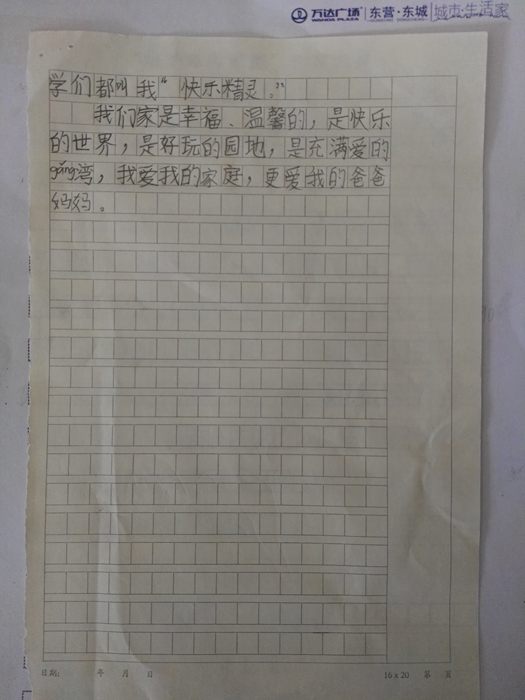 万达广场 WANDA PLAZA 东营·东城 城市·生活家
学们都叫我“快乐精灵。”
我们家是幸福、温馨的，是快乐
的世界，是好玩的园地，是充满爱的
gǎng湾，我爱我的家庭，更爱我的爸爸
妈妈。
日期： 年 月 日 16x20 第 页